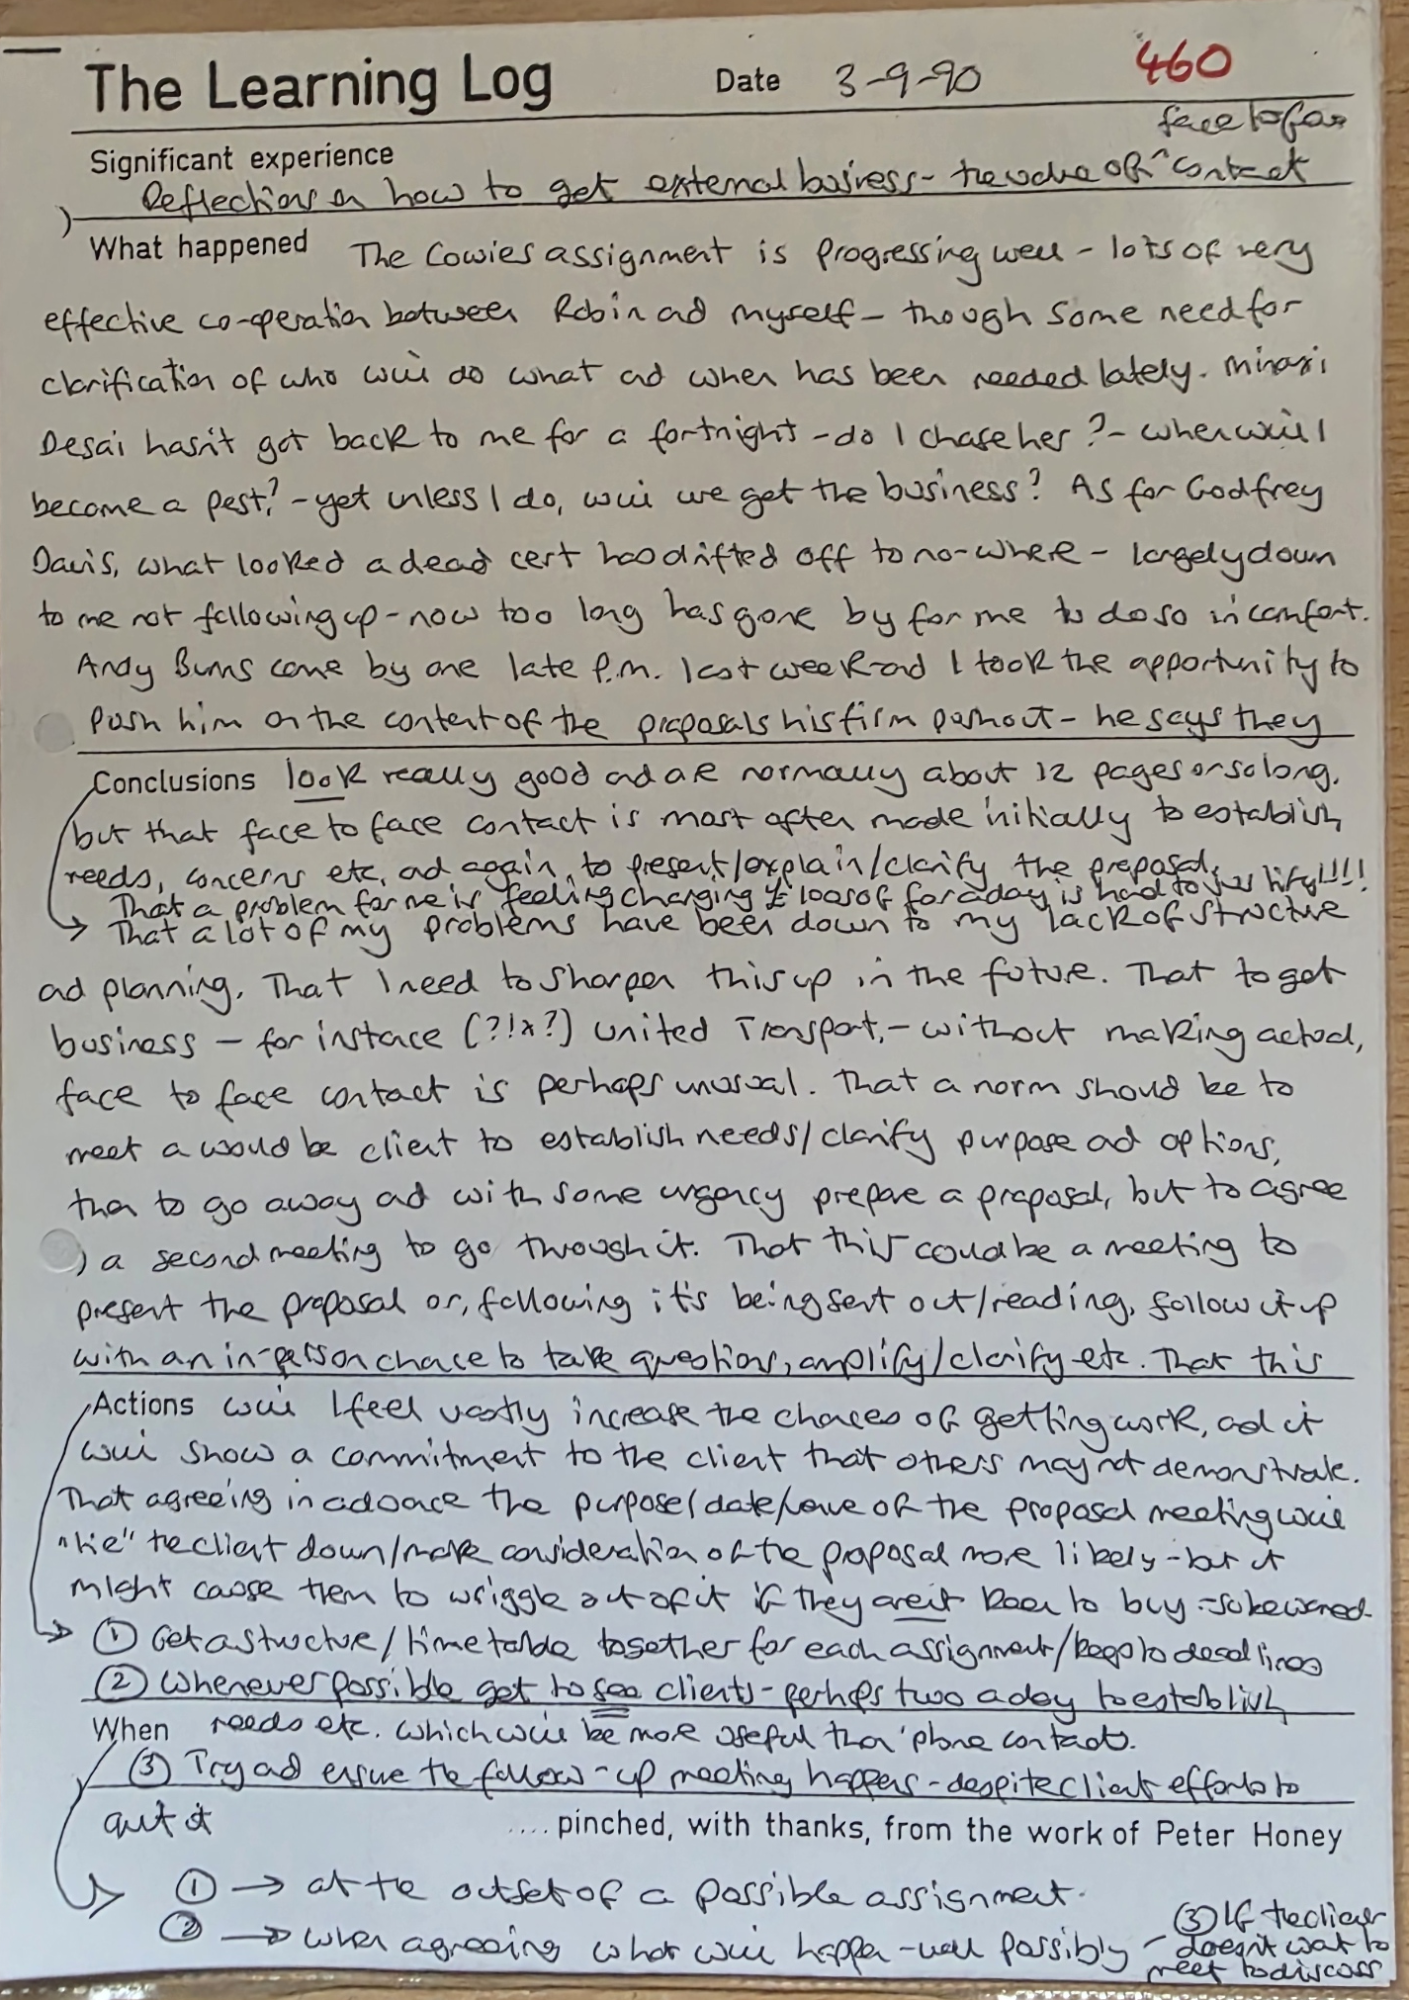 The Learning Log Date 3-9-90 460
face to face
Significant experience
Reflections on how to get external business - the value of ^ contact
What happened The Cowies assignment is progressing well - lots of very
effective co-operation between Robin ad myself - though some need for
clarification of who will do what ad when has been needed lately. Minaxi
Desai hasn't got back to me for a fortnight - do I chase her? - when will I
become a pest? - yet unless I do, will we get the business? As for Godfrey
Davis, what looked a dead cert has drifted off to no-where - largely down
to me not following up - now too long has gone by for me to do so in comfort.
Andy Burns came by one late p.m. last week ad I took the opportunity to
push him on the content of the proposals his firm push out - he says they
Conclusions look really good ad are normally about 12 pages or so long,
but that face to face contact is most often made initially to establish
needs, concerns etc, ad again, to present/explain/clarify the proposal.
That a problem for me is feeling charging £ loads of for a day is hard to justify!!!!
That a lot of my problems have been down to my lack of structure
ad planning. That I need to sharpen this up in the future. That to get
business - for instace (?!*?) United Transport, - without making actual,
face to face contact is perhaps unusual. That a norm should be to
meet a would be client to establish needs/clarify purpose ad options,
then to go away ad with some urgency prepare a proposal, but to agree
a second meeting to go through it. That this could be a meeting to
present the proposal or, following it's being sent out/reading, follow it up
with an in-person chance to take questions, amplify/clarify etc. That this
Actions will I feel vastly increase the chances of getting work, ad it
will show a commitment to the client that others may not demonstrate.
That agreeing in advance the purpose/date/venue of the proposal meeting will
"tie" the client down/make consideration of the proposal more likely - but it
might cause them to wriggle out of it if they aren't keen to buy - so be warned.
① Get a structure/timetable together for each assignment/keep to deadlines
② Whenever possible get to see clients - perhaps two a day to establish
When needs etc. which will be more useful than 'phone contacts.
③ Try ad ensure the follow-up meeting happens - despite client efforts to
quit it
.... pinched, with thanks, from the work of Peter Honey
① → at the outset of a possible assignment.
② → when agreeing what will happen - well possibly
③ If the client
- doesn't want to
meet to discuss